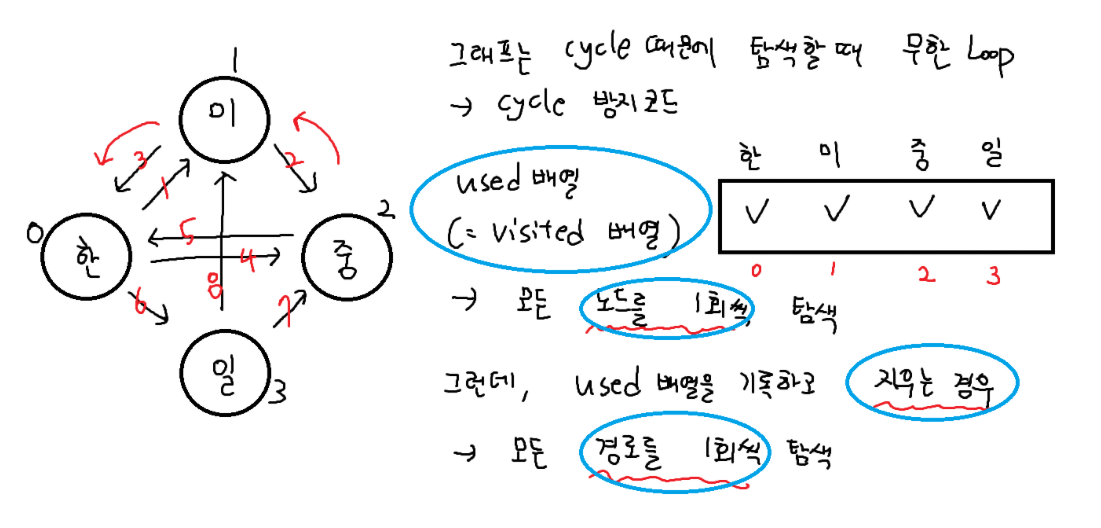 1
미
3
2
1
0
한
5
4
2
중
6
8
7
일
3
그래프는 cycle 때문에 탐색할 때 무한 Loop
→ cycle 방지코드
used 배열
(= visited 배열)
한 미 중 일
✓ ✓ ✓ ✓
0 1 2 3
→ 모든 노드를 1회씩 탐색
그런데, used 배열을 기록하고 지우는 경우
→ 모든 경로를 1회씩 탐색